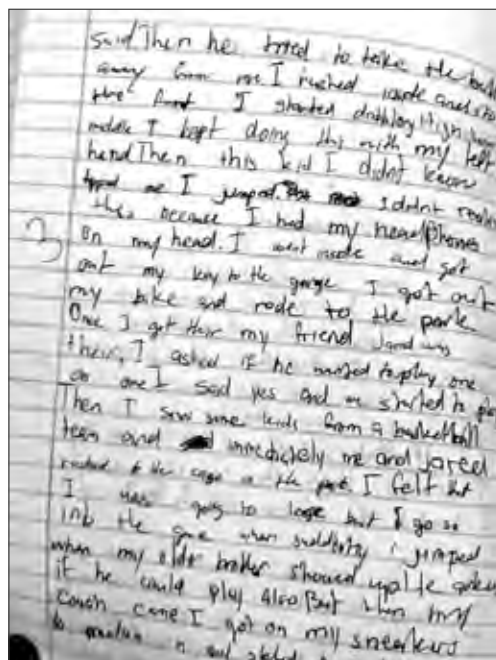 said Then he tried to take the ball
away from me I rushed inside and
the front I started dribbling High
middle I kept doing this with my left
hand Then this kid I didn't know
me I jumped. I didnt
this because I had my headphones
3 on my head. I went inside and got
out my key to the garage I got out
my bike and rode to the park
Once I got their my friend Jared was
their, I asked if he wanted to play one
on one I said yes and we started to play
Then I saw some kids from a basketball
team and immediately me and jared
to the cage in the I felt that
I was going to lose but I go so
into the game when suddenly i jumped
when my older brother showed up He asked
if he could play also But when my
coach came I got on my sneakers
to